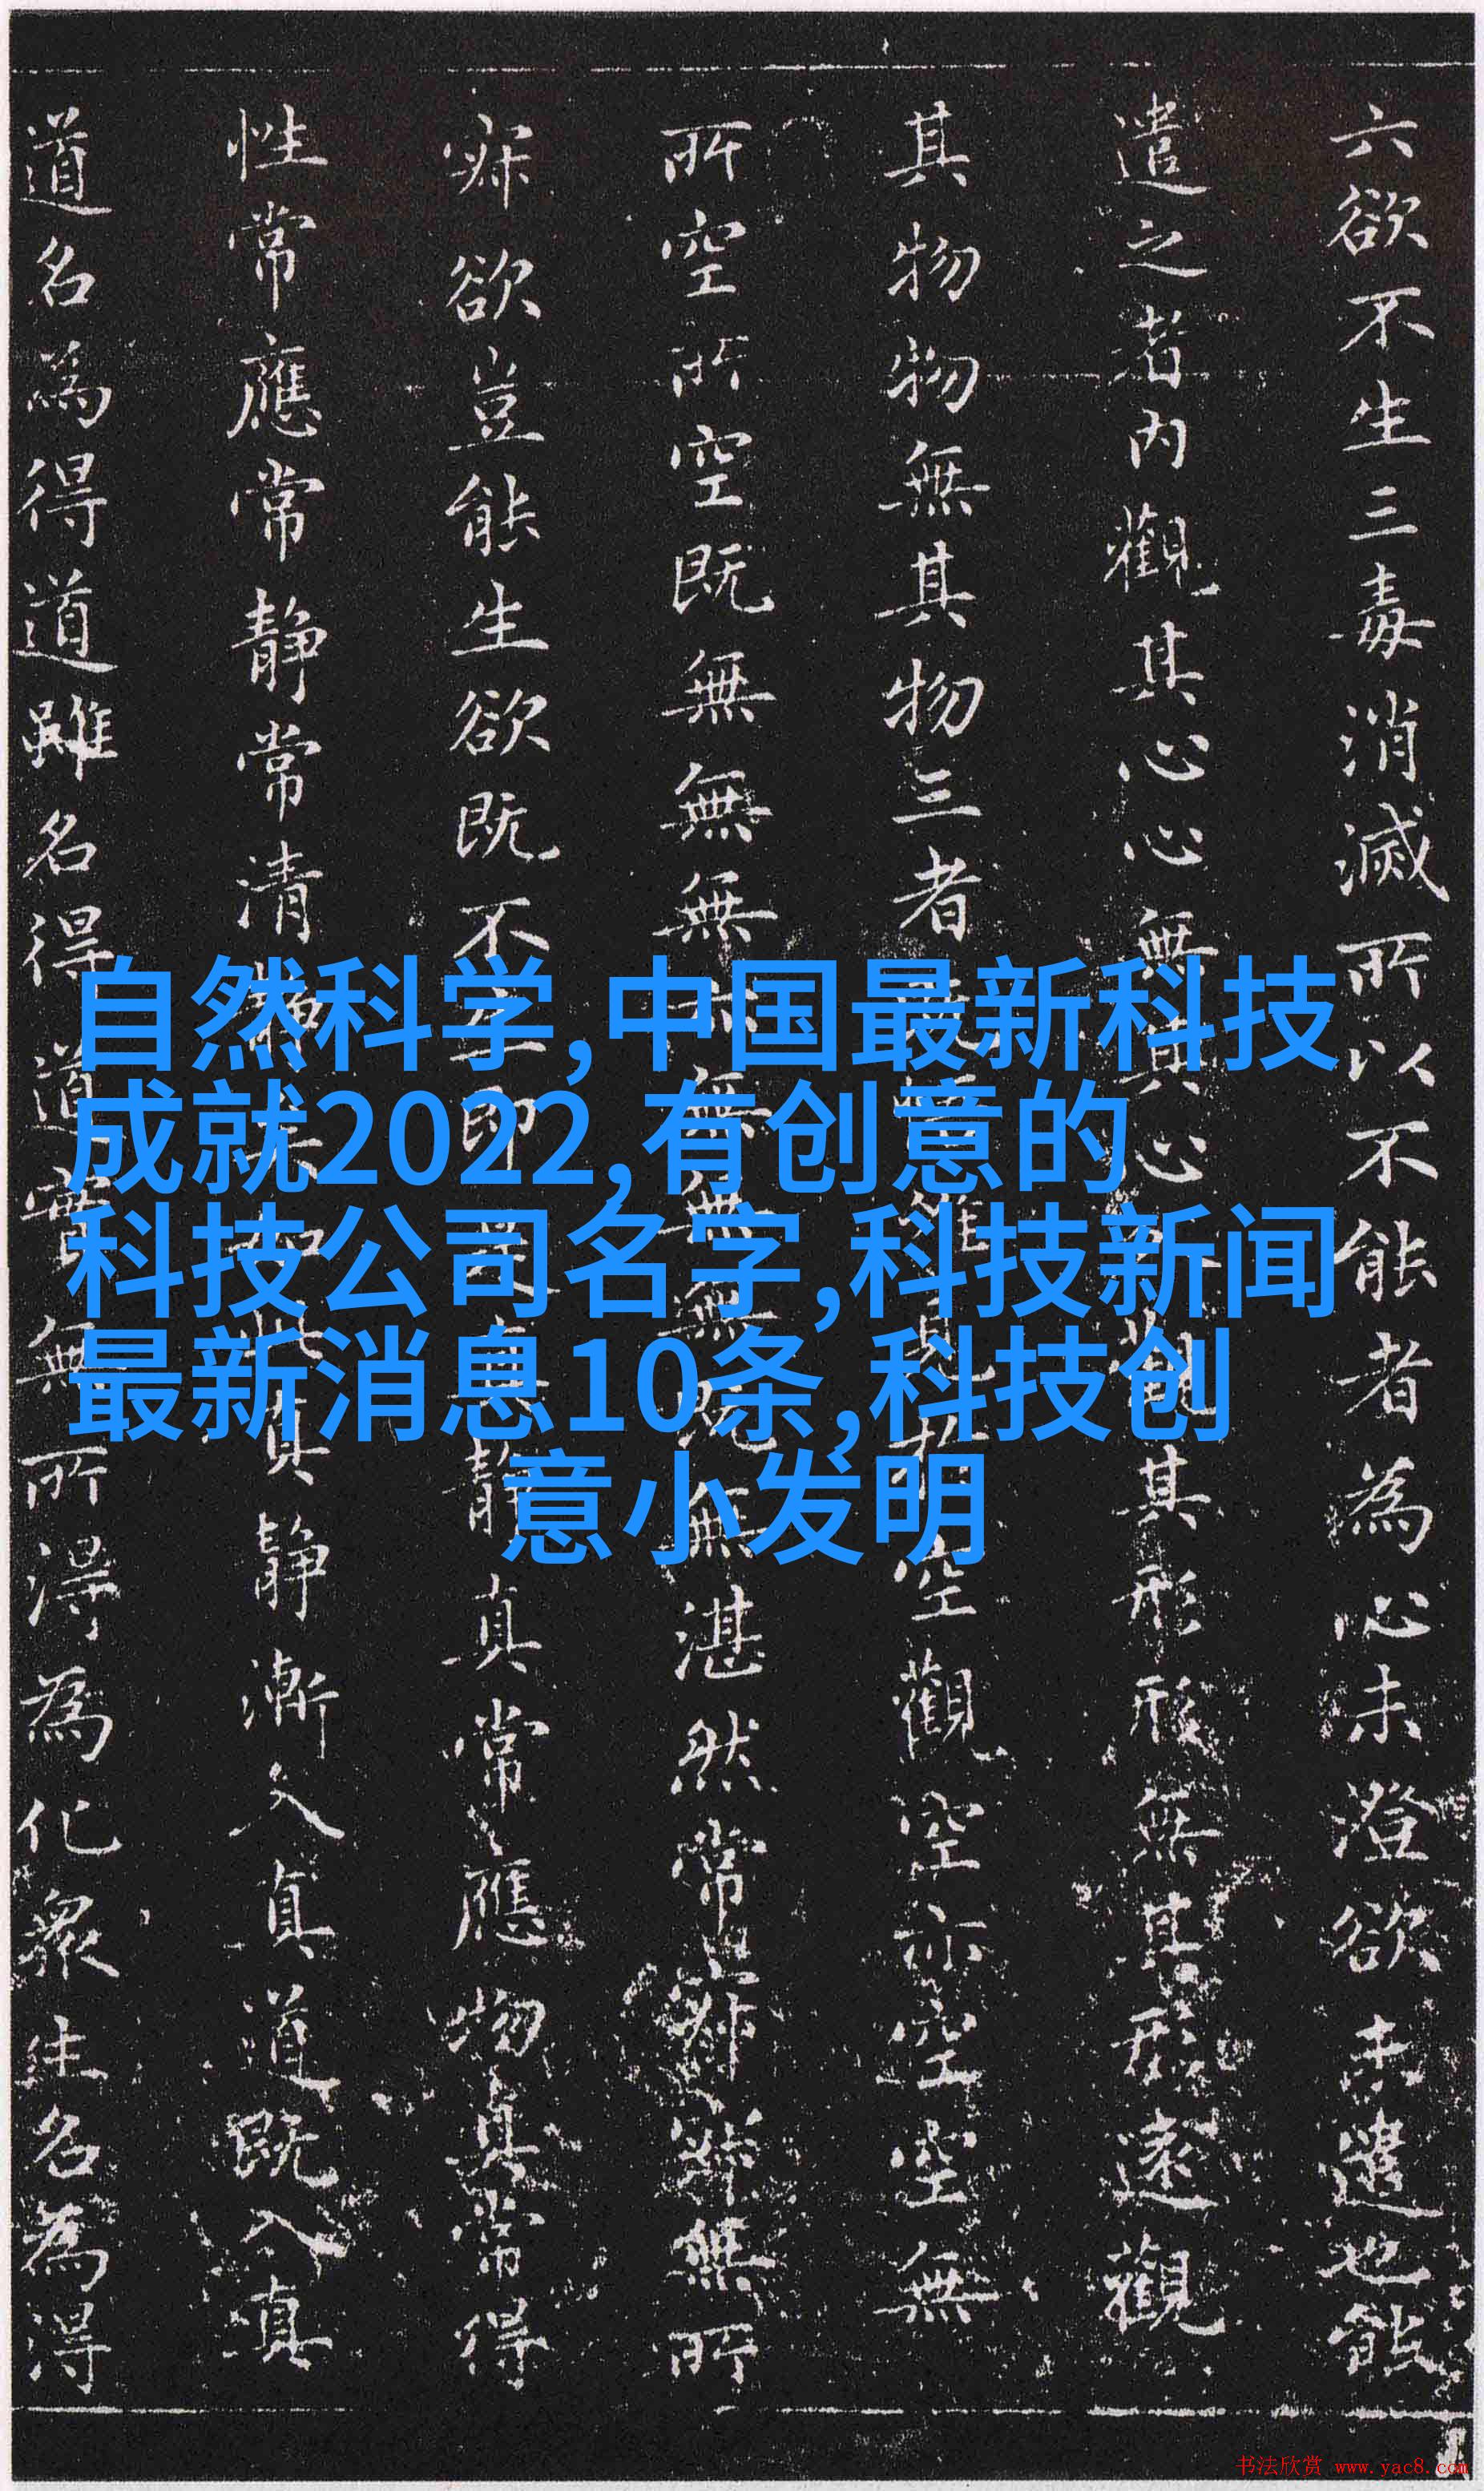 六欲不生三毒消滅所以不能者為心未澄欲未遣也能
遣之者内觀其心心無其心觀其形形無其形遠觀
其物物無其物三者空觀空亦空空無
所空所空既無無無亦無無無既無湛然常寂寂無所
寂欲豈能生欲既不生即是真静真常應物真常得
性常應常静常清真静漸入真道既入真
道名為得道雖名得道實無所得為化衆生名為得
自然科学,中国最新科技
成就2022,有创意的
科技公司名字,科技新闻
最新消息10条,科技创
意小发明
书法欣赏 www.yac8.com